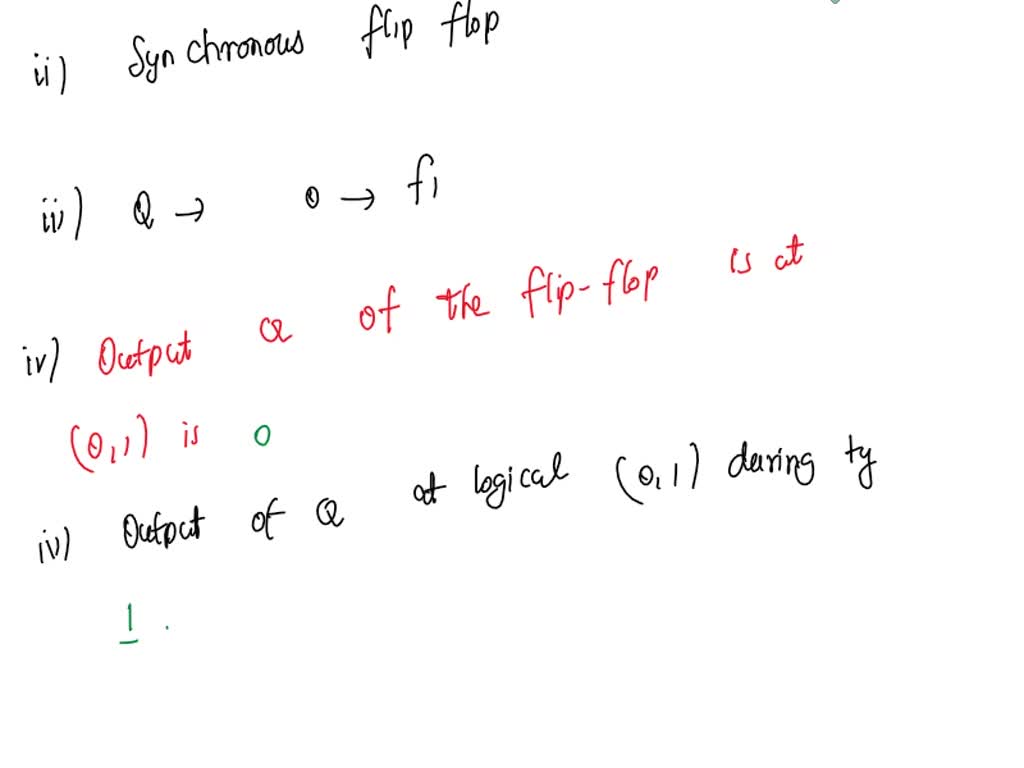 ii) Synchronous flip flop
iii) Q → 0 → f1
iv) Output Q of the flip-flop is at
(0,1) is 0
iv) Output of Q at logical (0,1) during ty
1.